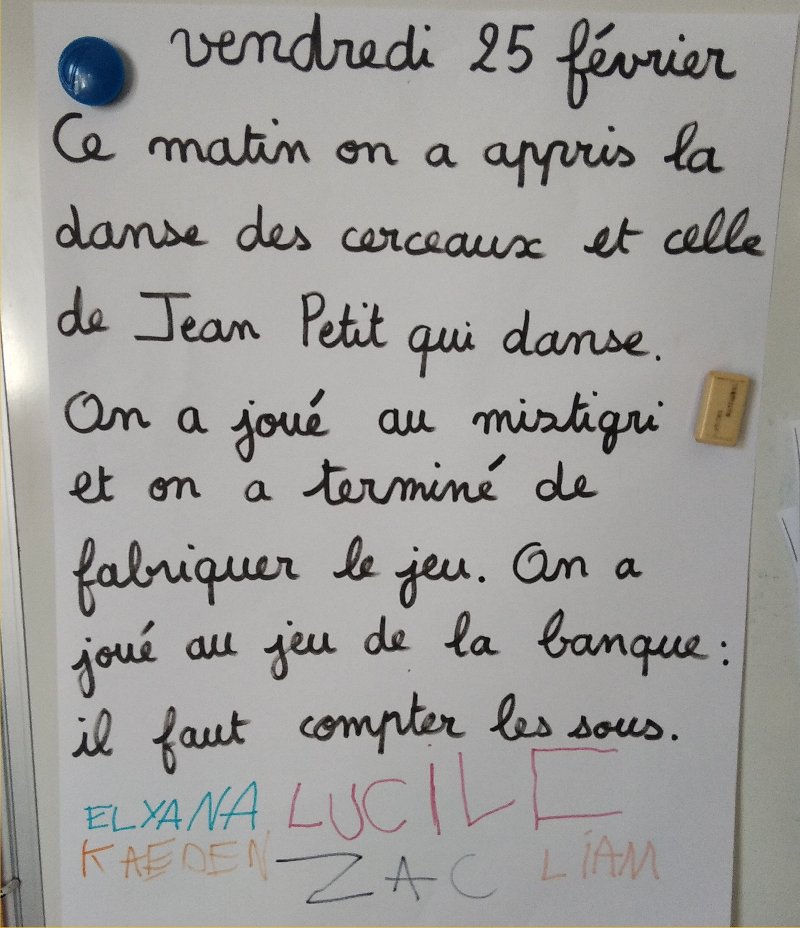 vendredi 25 février
Ce matin on a appris la
danse des cerceaux et celle
de Jean Petit qui danse.
On a joué au mistigri
et on a terminé de
fabriquer le jeu. On a
joué au jeu de la banque :
il faut compter les sous.
ELYANA LUCILE
KAEDEN ZAC LiAM